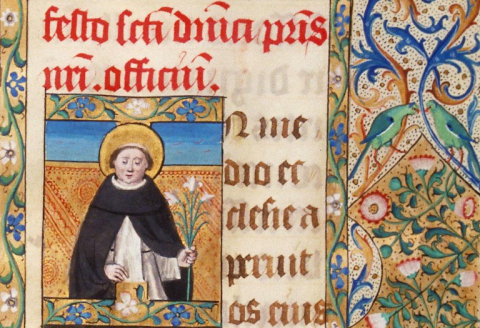 festo scti̅ dn̅ici pr̅is
nr̅i. officiu̅.
N me
dio ec
clesie a
peruit
os eius